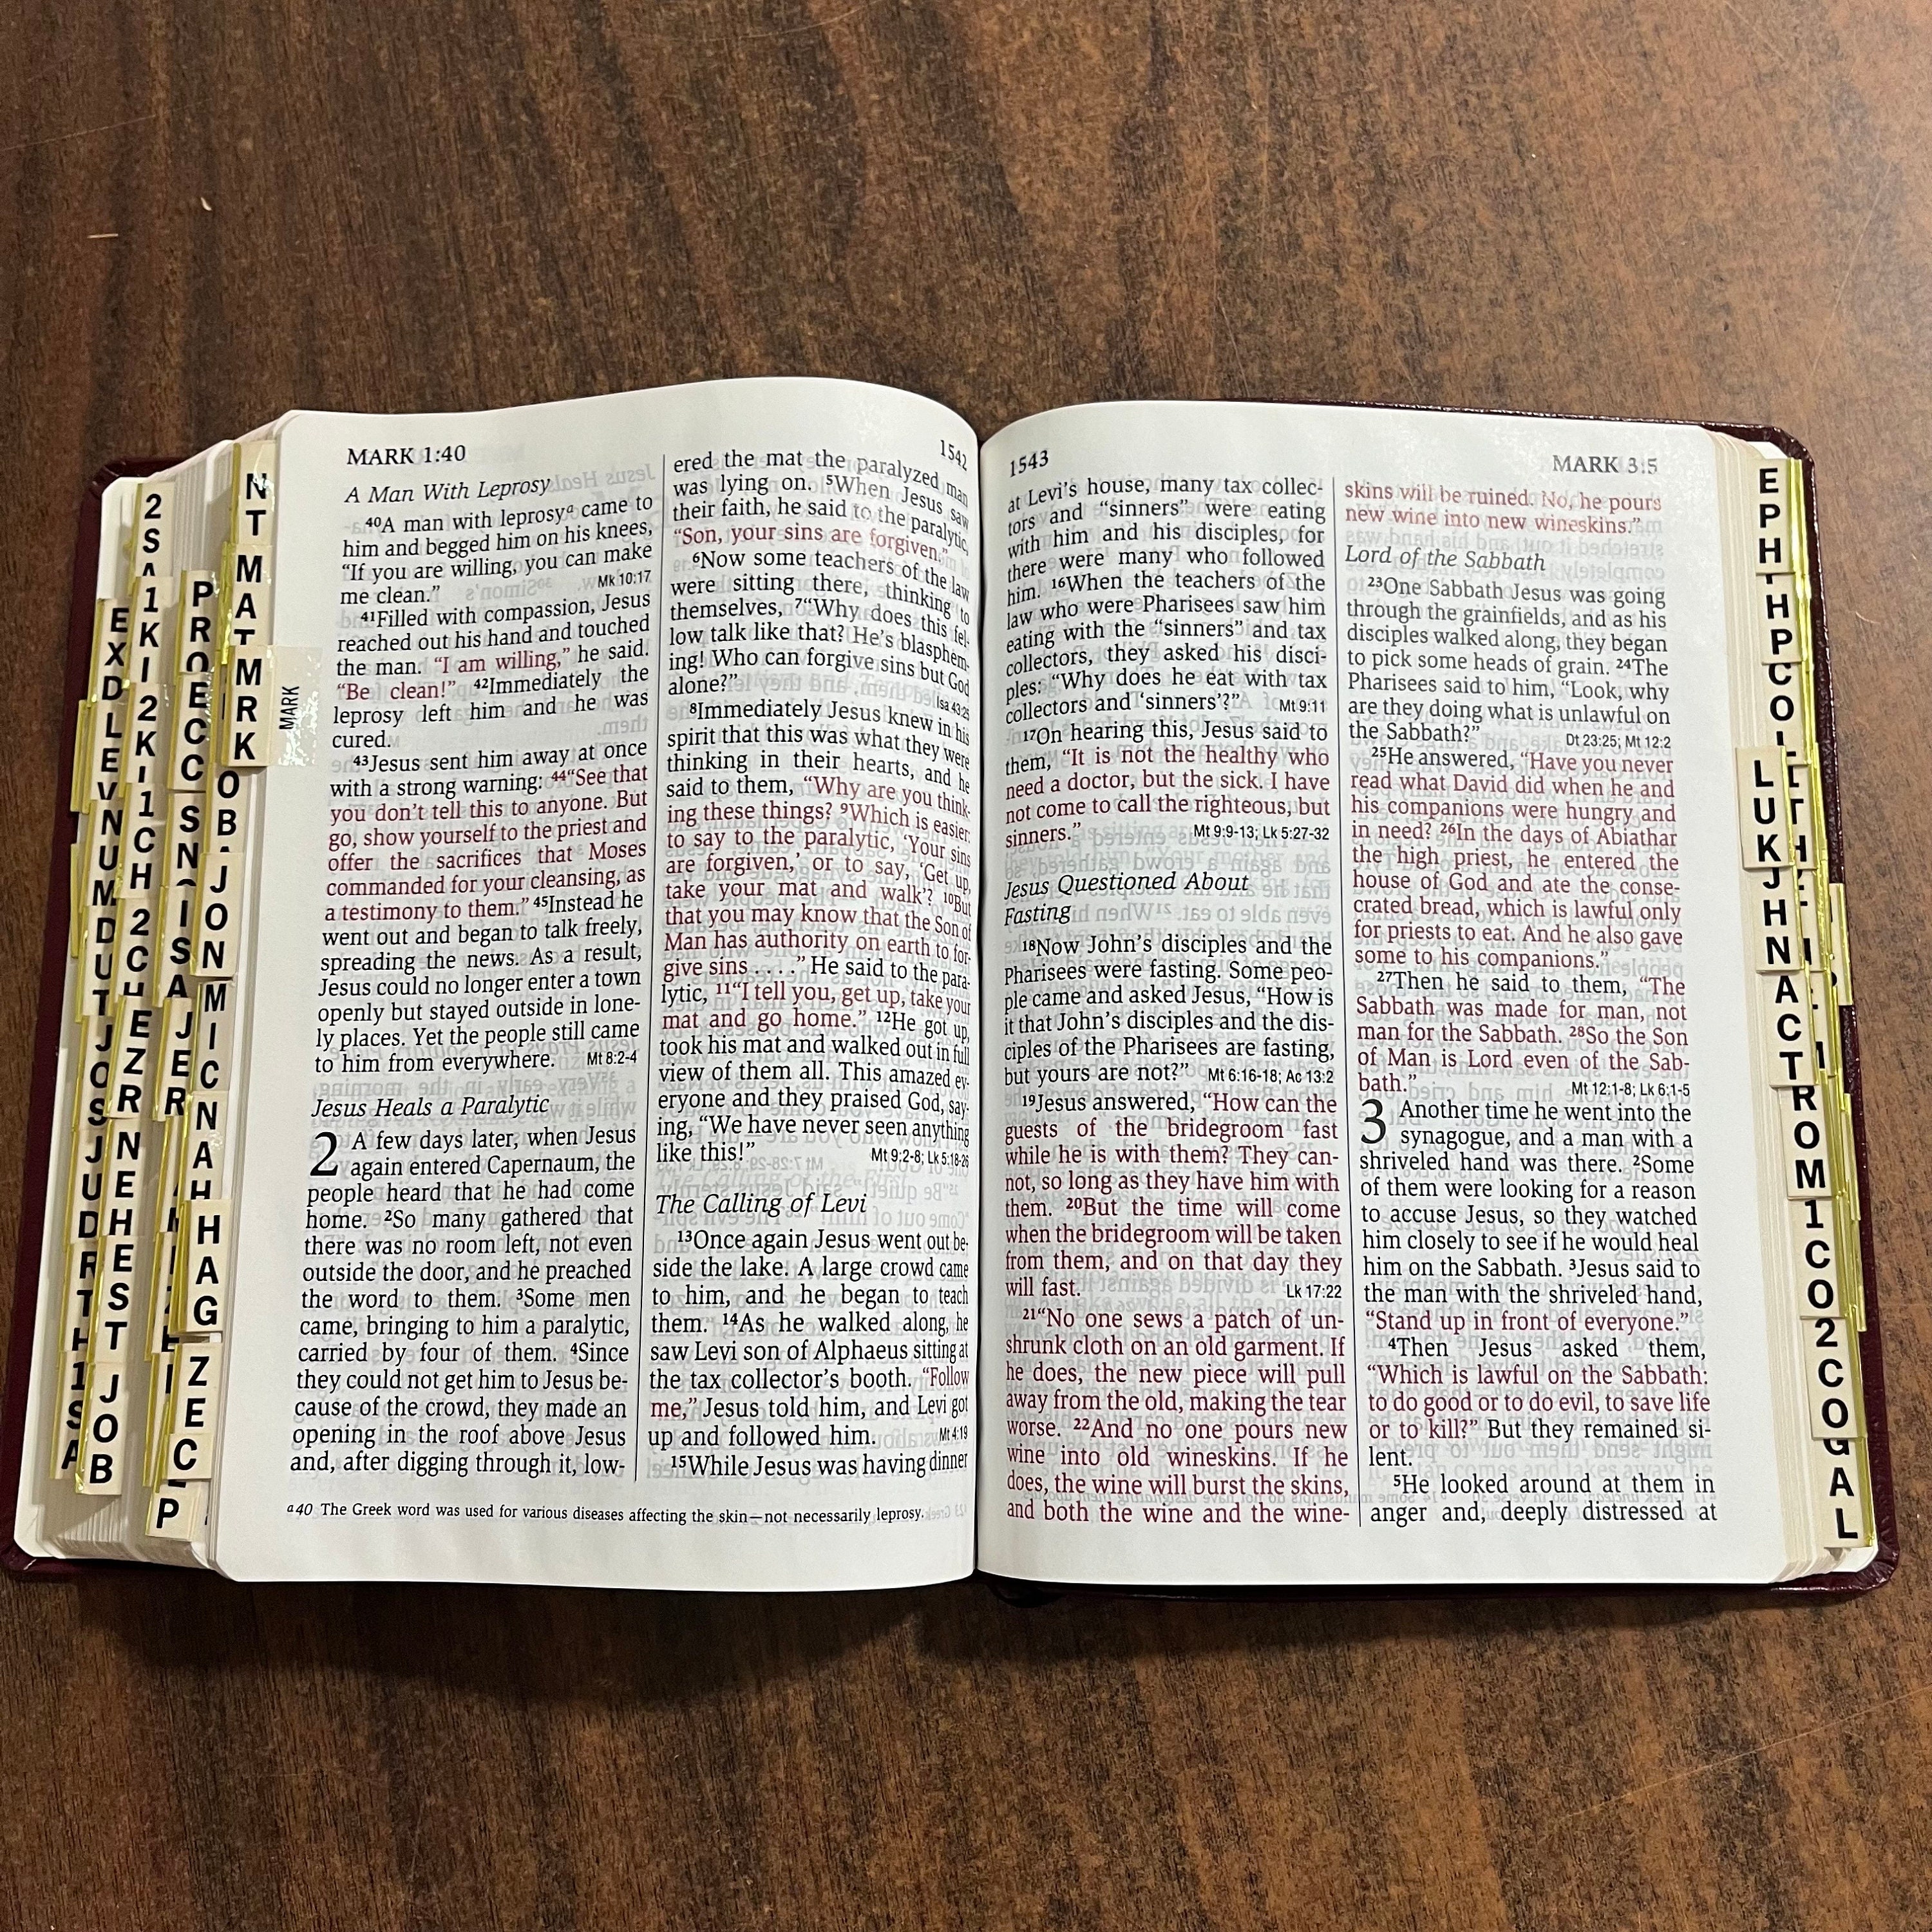 MARK 1:40
1542
A Man With Leprosy
⁴⁰A man with leprosyᵃ came to
him and begged him on his knees,
“If you are willing, you can make
me clean.” Mk 10:17
⁴¹Filled with compassion, Jesus
reached out his hand and touched
the man. “I am willing,” he said.
“Be clean!” ⁴²Immediately the
leprosy left him and he was
cured.
⁴³Jesus sent him away at once
with a strong warning: ⁴⁴“See that
you don’t tell this to anyone. But
go, show yourself to the priest and
offer the sacrifices that Moses
commanded for your cleansing, as
a testimony to them.” ⁴⁵Instead he
went out and began to talk freely,
spreading the news. As a result,
Jesus could no longer enter a town
openly but stayed outside in lone-
ly places. Yet the people still came
to him from everywhere. Mt 8:2-4
Jesus Heals a Paralytic
2 A few days later, when Jesus
again entered Capernaum, the
people heard that he had come
home. ²So many gathered that
there was no room left, not even
outside the door, and he preached
the word to them. ³Some men
came, bringing to him a paralytic,
carried by four of them. ⁴Since
they could not get him to Jesus be-
cause of the crowd, they made an
opening in the roof above Jesus
and, after digging through it, low-
ered the mat the paralyzed man
was lying on. ⁵When Jesus saw
their faith, he said to the paralytic,
“Son, your sins are forgiven.”
⁶Now some teachers of the law
were sitting there, thinking to
themselves, ⁷“Why does this fel-
low talk like that? He’s blasphem-
ing! Who can forgive sins but God
alone?” Isa 43:25
⁸Immediately Jesus knew in his
spirit that this was what they were
thinking in their hearts, and he
said to them, “Why are you think-
ing these things? ⁹Which is easier:
to say to the paralytic, ‘Your sins
are forgiven,’ or to say, ‘Get up,
take your mat and walk’? ¹⁰But
that you may know that the Son of
Man has authority on earth to for-
give sins . . . .” He said to the para-
lytic, ¹¹“I tell you, get up, take your
mat and go home.” ¹²He got up,
took his mat and walked out in full
view of them all. This amazed ev-
eryone and they praised God, say-
ing, “We have never seen anything
like this!” Mt 9:2-8; Lk 5:18-26
The Calling of Levi
¹³Once again Jesus went out be-
side the lake. A large crowd came
to him, and he began to teach
them. ¹⁴As he walked along, he
saw Levi son of Alphaeus sitting at
the tax collector’s booth. “Follow
me,” Jesus told him, and Levi got
up and followed him. Mt 4:19
¹⁵While Jesus was having dinner
a40 The Greek word was used for various diseases affecting the skin—not necessarily leprosy.
1543
MARK 3:5
at Levi’s house, many tax collec-
tors and “sinners” were eating
with him and his disciples, for
there were many who followed
him. ¹⁶When the teachers of the
law who were Pharisees saw him
eating with the “sinners” and tax
collectors, they asked his disci-
ples: “Why does he eat with tax
collectors and ‘sinners’?” Mt 9:11
¹⁷On hearing this, Jesus said to
them, “It is not the healthy who
need a doctor, but the sick. I have
not come to call the righteous, but
sinners.” Mt 9:9-13; Lk 5:27-32
Jesus Questioned About
Fasting
¹⁸Now John’s disciples and the
Pharisees were fasting. Some peo-
ple came and asked Jesus, “How is
it that John’s disciples and the dis-
ciples of the Pharisees are fasting,
but yours are not?” Mt 6:16-18; Ac 13:2
¹⁹Jesus answered, “How can the
guests of the bridegroom fast
while he is with them? They can-
not, so long as they have him with
them. ²⁰But the time will come
when the bridegroom will be taken
from them, and on that day they
will fast. Lk 17:22
²¹“No one sews a patch of un-
shrunk cloth on an old garment. If
he does, the new piece will pull
away from the old, making the tear
worse. ²²And no one pours new
wine into old wineskins. If he
does, the wine will burst the skins,
and both the wine and the wine-
skins will be ruined. No, he pours
new wine into new wineskins.”
Lord of the Sabbath
²³One Sabbath Jesus was going
through the grainfields, and as his
disciples walked along, they began
to pick some heads of grain. ²⁴The
Pharisees said to him, “Look, why
are they doing what is unlawful on
the Sabbath?” Dt 23:25; Mt 12:2
²⁵He answered, “Have you never
read what David did when he and
his companions were hungry and
in need? ²⁶In the days of Abiathar
the high priest, he entered the
house of God and ate the conse-
crated bread, which is lawful only
for priests to eat. And he also gave
some to his companions.”
²⁷Then he said to them, “The
Sabbath was made for man, not
man for the Sabbath. ²⁸So the Son
of Man is Lord even of the Sab-
bath.” Mt 12:1-8; Lk 6:1-5
3 Another time he went into the
synagogue, and a man with a
shriveled hand was there. ²Some
of them were looking for a reason
to accuse Jesus, so they watched
him closely to see if he would heal
him on the Sabbath. ³Jesus said to
the man with the shriveled hand,
“Stand up in front of everyone.”
⁴Then Jesus asked them,
“Which is lawful on the Sabbath:
to do good or to do evil, to save life
or to kill?” But they remained si-
lent.
⁵He looked around at them in
anger and, deeply distressed at
EXD
LEV
NUM
DUT
JOS
JUD
RTH
1SA
2SA
1KI
2KI
1CH
2CH
EZR
NEH
EST
JOB
PRO
ECC
SNO
ISA
JER
OB
JON
MIC
NAH
HAG
ZEC
NT
MAT
MRK
MARK
LUK
JHN
ACT
ROM
1CO
2CO
GAL
EPH
PHP
COL